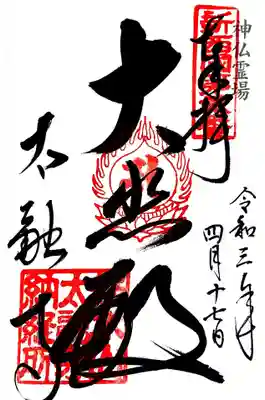 神仏霊場
奉拝
大悲殿
太融寺
令和三年
四月十七日
太融寺
納経所